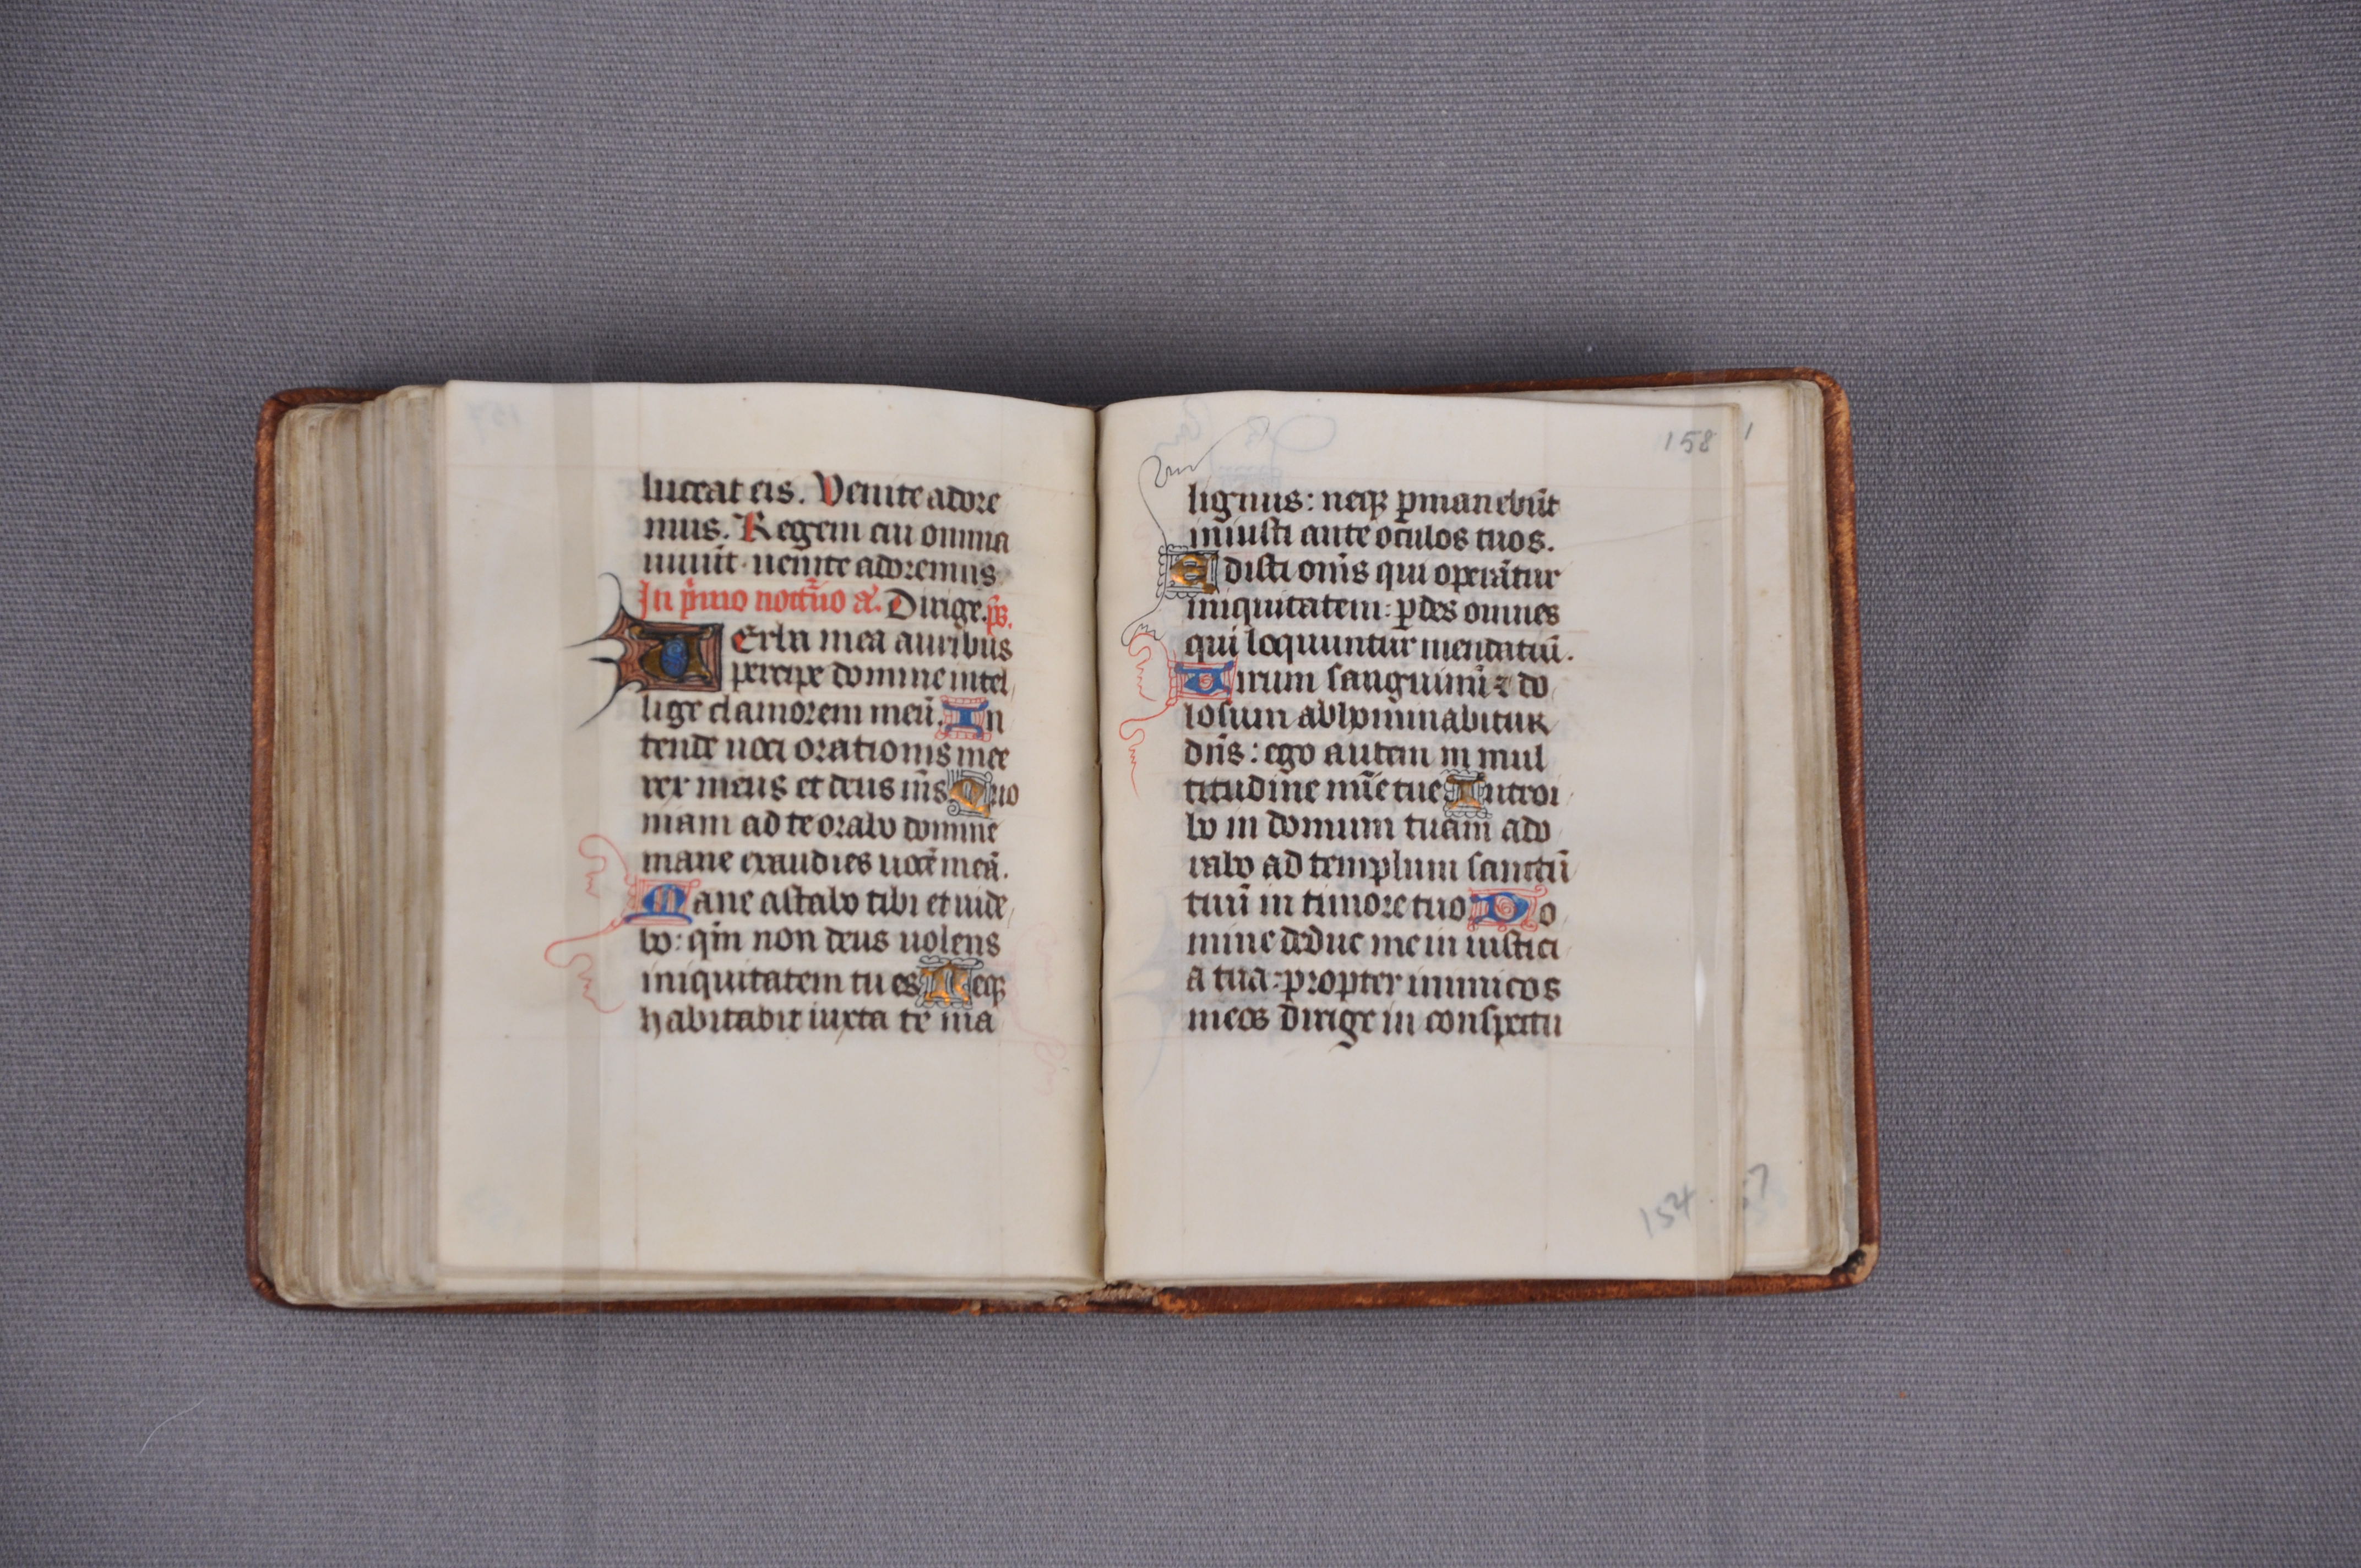 luceat eis. Venite adore
mus. Regem cui omnia
uiuūt uenite adoremus
In p̄mo noct̄no a̾. Dirige. p̄s.
VErba mea auribus
percipe domine intel
lige clamorem meū. In
tende uoci orationis mee
rex meus et deus m̄s Quo
niam ad te orabo domine
mane exaudies uocē meā.
Mane astabo tibi et uide
bo: qm̄ non deus uolens
iniquitatem tu es Neqꝫ
habitabit iuxta te ma
158
lignus: neqꝫ ꝑmanebūt
iniusti ante oculos tuos.
Odisti om̄s qui operātur
iniquitatem: ꝑdes omnes
qui loquuntur mendatiū.
Virum sanguinū ⁊ do
losum abhominabitur
dn̄s: ego autem in mul
titudine mīe tue Introi
bo in domum tuam ado
rabo ad templum sanctū
tuū in timore tuo Do
mine deduc me in iustici
a tua: propter inimicos
meos dirige in conspectu
154